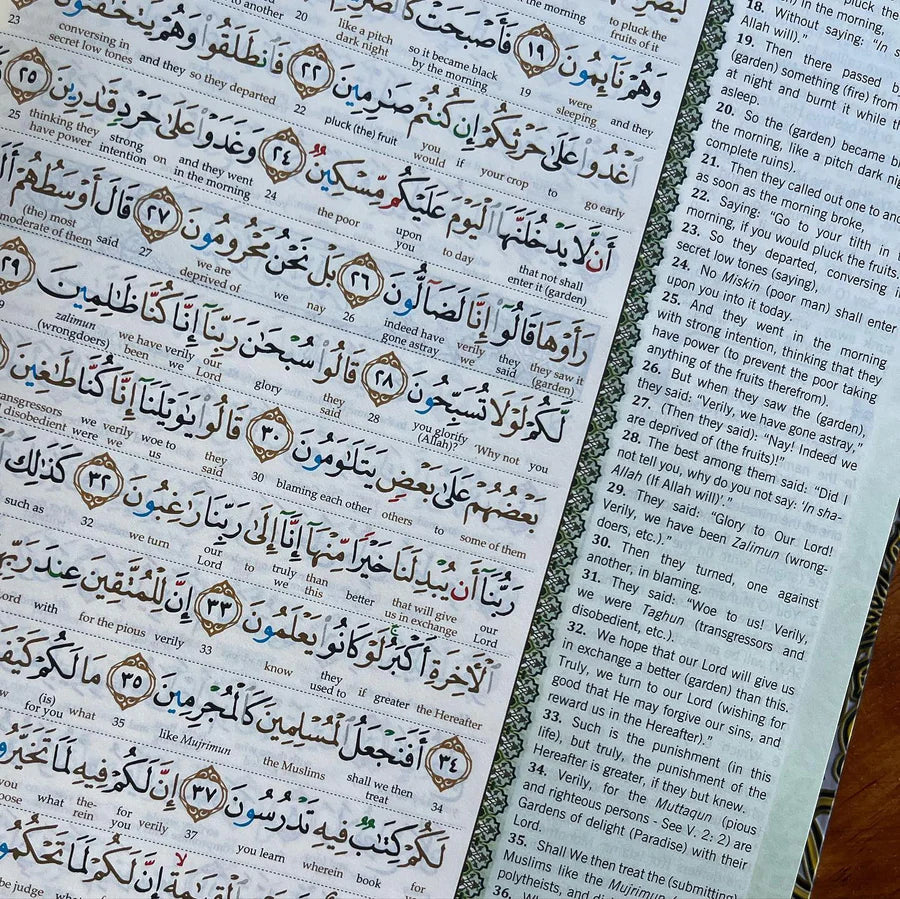 to pluck the fruits of it in the morning
وَهُمْ نَآئِمُونَ ﴿١٩﴾ فَأَصْبَحَتْ
and they were sleeping 19 so it became black by the morning like a pitch dark night 20 to another in the morning
ٱغْدُوا۟ عَلَىٰ حَرْثِكُمْ إِن كُنتُمْ صَـٰرِمِينَ ﴿٢٢﴾ فَٱنطَلَقُوا۟ وَهُمْ يَتَخَـٰفَتُونَ
go early to your crop if you would pluck (the) fruit 22 so they departed and they conversing in secret low tones 23
أَن لَّا يَدْخُلَنَّهَا ٱلْيَوْمَ عَلَيْكُم مِّسْكِينٌ ﴿٢٤﴾ وَغَدَوْا۟ عَلَىٰ حَرْدٍ قَـٰدِرِينَ ﴿٢٥﴾
that not shall enter it (garden) to day upon you the poor 24 and they went in the morning on strong intention thinking they have power 25
رَأَوْهَا قَالُوٓا۟ إِنَّا لَضَآلُّونَ ﴿٢٦﴾ بَلْ نَحْنُ مَحْرُومُونَ ﴿٢٧﴾ قَالَ أَوْسَطُهُمْ
they saw it (garden) they said verily we indeed have gone astray 26 nay we we are deprived of 27 said (the) most moderate of them
لَّكُمْ لَوْلَا تُسَبِّحُونَ ﴿٢٨﴾ قَالُوا۟ سُبْحَـٰنَ رَبِّنَآ إِنَّا كُنَّا ظَـٰلِمِينَ ﴿٢٩﴾
you 'Why not you glorify (Allah)?' 28 they said glory our Lord verily we have been zalimun (wrongdoers)
بَعْضُهُمْ عَلَىٰ بَعْضٍ يَتَلَـٰوَمُونَ ﴿٣٠﴾ قَالُوا۟ يَـٰوَيْلَنَآ إِنَّا كُنَّا طَـٰغِينَ
some of them to others blaming each other 30 they said woe to us verily we were
رَبُّنَآ أَن يُبْدِلَنَا خَيْرًا مِّنْهَآ إِنَّآ إِلَىٰ رَبِّنَا رَٰغِبُونَ ﴿٣٢﴾ كَذَٰلِكَ
our Lord that will give us in exchange better than this truly we to our Lord we turn 32 such as
ٱلْـَٔاخِرَةِ أَكْبَرُ لَوْ كَانُوا۟ يَعْلَمُونَ ﴿٣٣﴾ إِنَّ لِلْمُتَّقِينَ عِندَ
the Hereafter greater if they used to know 33 verily for the pious with Lord
﴿٣٤﴾ أَفَنَجْعَلُ ٱلْمُسْلِمِينَ كَٱلْمُجْرِمِينَ ﴿٣٥﴾ مَا لَكُمْ
34 shall we then treat the Muslims like Mujrimun 35 what (is) for you
لَكُمْ كِتَـٰبٌ فِيهِ تَدْرُسُونَ ﴿٣٧﴾ إِنَّ لَكُمْ فِيهِ لَمَا
for book wherein you learn 37 verily for you therein what you
إِنَّ لَكُمْ لَمَا
be judge what
in the morning,
18. Without saying: "In
Allah will)."
19. Then there passed
(garden) something (fire) from
at night and burnt it while
asleep.
20. So the (garden) became
the morning, like a pitch dark
complete ruins).
21. Then they called out one to
as soon as the morning broke,
22. Saying: "Go to your tilth in
morning, if you would pluck the fruits
23. So they departed, conversing
secret low tones (saying),
24. No Miskin (poor man) shall enter
upon you into it today.
25. And they went in the morning
with strong intention, thinking that they
have power (to prevent the poor taking
anything of the fruits therefrom).
26. But when they saw the (garden),
they said: "Verily, we have gone astray,"
27. (Then they said): "Nay! Indeed we
are deprived of (the fruits)!"
28. The best among them said: "Did I
not tell you, why do you not say: 'In sha-
Allah (If Allah will)'."
29. They said: "Glory to Our Lord!
Verily, we have been Zalimun (wrong-
doers, etc.)."
30. Then they turned, one against
another, in blaming.
31. They said: "Woe to us! Verily,
we were Taghun (transgressors and
disobedient, etc.)
32. We hope that our Lord will give us
in exchange a better (garden) than this.
Truly, we turn to our Lord (wishing for
good that He may forgive our sins, and
reward us in the Hereafter)."
33. Such is the punishment (in this
life), but truly, the punishment of the
Hereafter is greater, if they but knew.
34. Verily, for the Muttaqun (pious
and righteous persons - See V. 2: 2) are
Gardens of delight (Paradise) with their
Lord.
35. Shall We then treat the (submitting)
Muslims like the Mujrimun
polytheists, and
36.